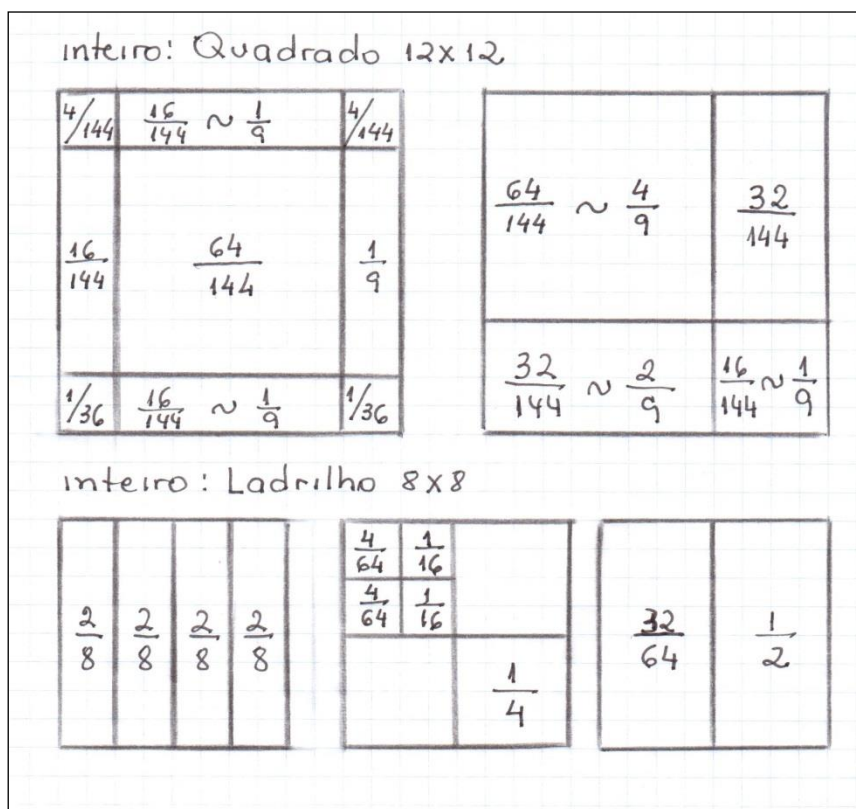 inteiro: Quadrado 12x12
4/144 16/144 ~ 1/9 4/144
16/144 64/144 1/9
1/36 16/144 ~ 1/9 1/36
64/144 ~ 4/9 32/144
32/144 ~ 2/9 16/144 ~ 1/9
inteiro: Ladrilho 8x8
2/8 2/8 2/8 2/8
4/64 1/16
4/64 1/16
1/4
32/64 1/2